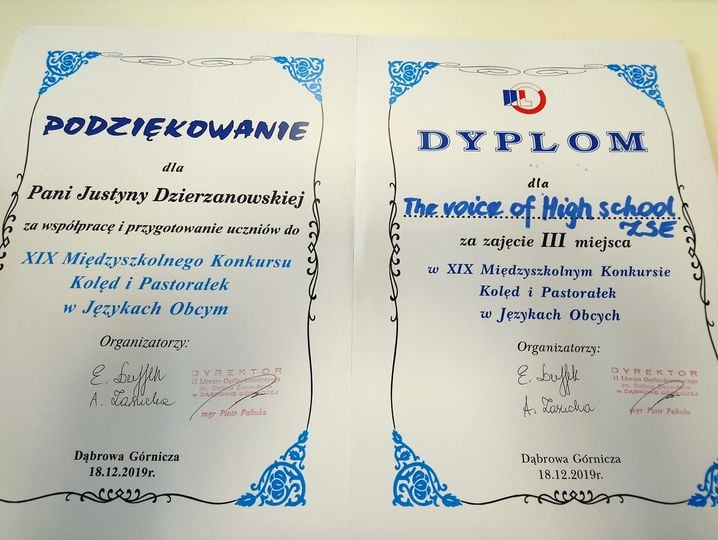 PODZIĘKOWANIE
dla
Pani Justyny Dzierzanowskiej
za współpracę i przygotowanie uczniów do
XIX Międzyszkolnego Konkursu
Kolęd i Pastorałek
w Językach Obcym
Organizatorzy:
E.
A. Zasucha
DYREKTOR
II Liceum Ogólnokształcącego
im. Stefana Żeromskiego
w DĄBROWIE GÓRNICZEJ
mgr Piotr Pakuła
Dąbrowa Górnicza
18.12.2019r.
DYPLOM
dla
The voice of High school
ZSE
za zajęcie III miejsca
w XIX Międzyszkolnym Konkursie
Kolęd i Pastorałek
w Językach Obcych
Organizatorzy:
E.
A. Zasucha
DYREKTOR
II Liceum Ogólnokształcącego
im. Stefana Żeromskiego
w DĄBROWIE GÓRNICZEJ
mgr Piotr Pakuła
Dąbrowa Górnicza
18.12.2019r.